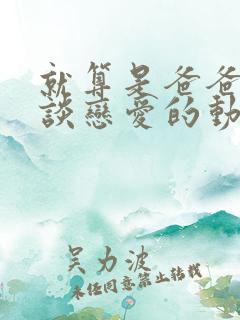 就算是爸爸
談戀愛的動
吳力波
未經同意禁止轉載